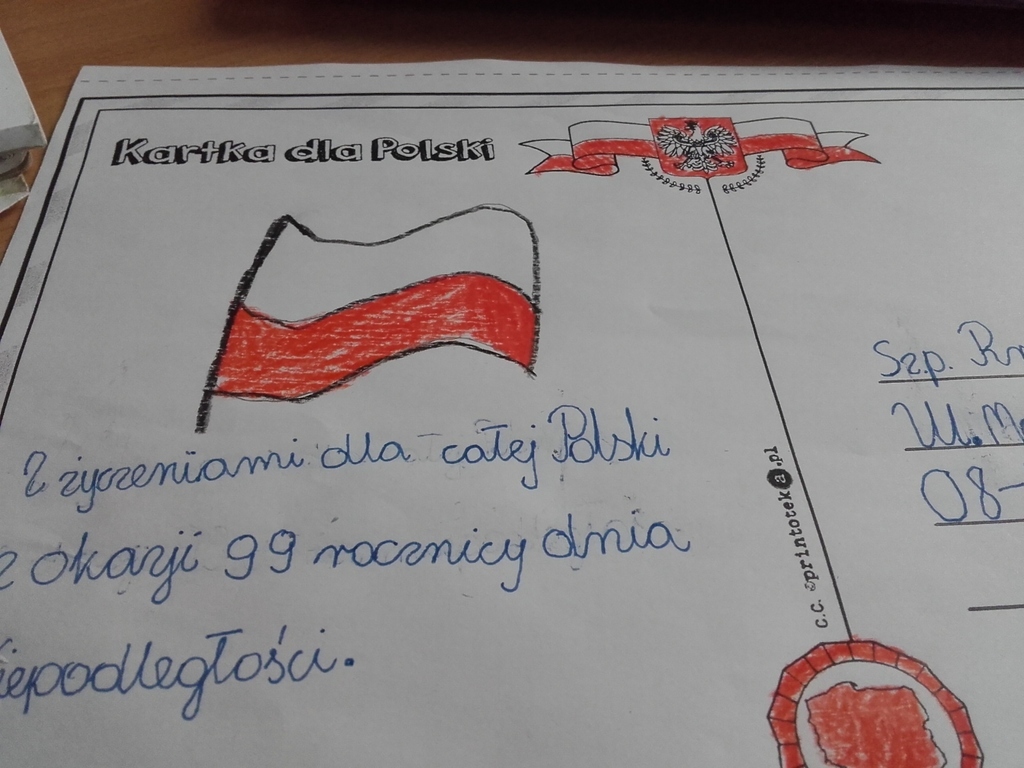 Kartka dla Polski
Z życzeniami dla całej Polski
z okazji 99 rocznicy dnia
iepodległości.
c.c. printoteka.pl
Szp.
Ul.
08-